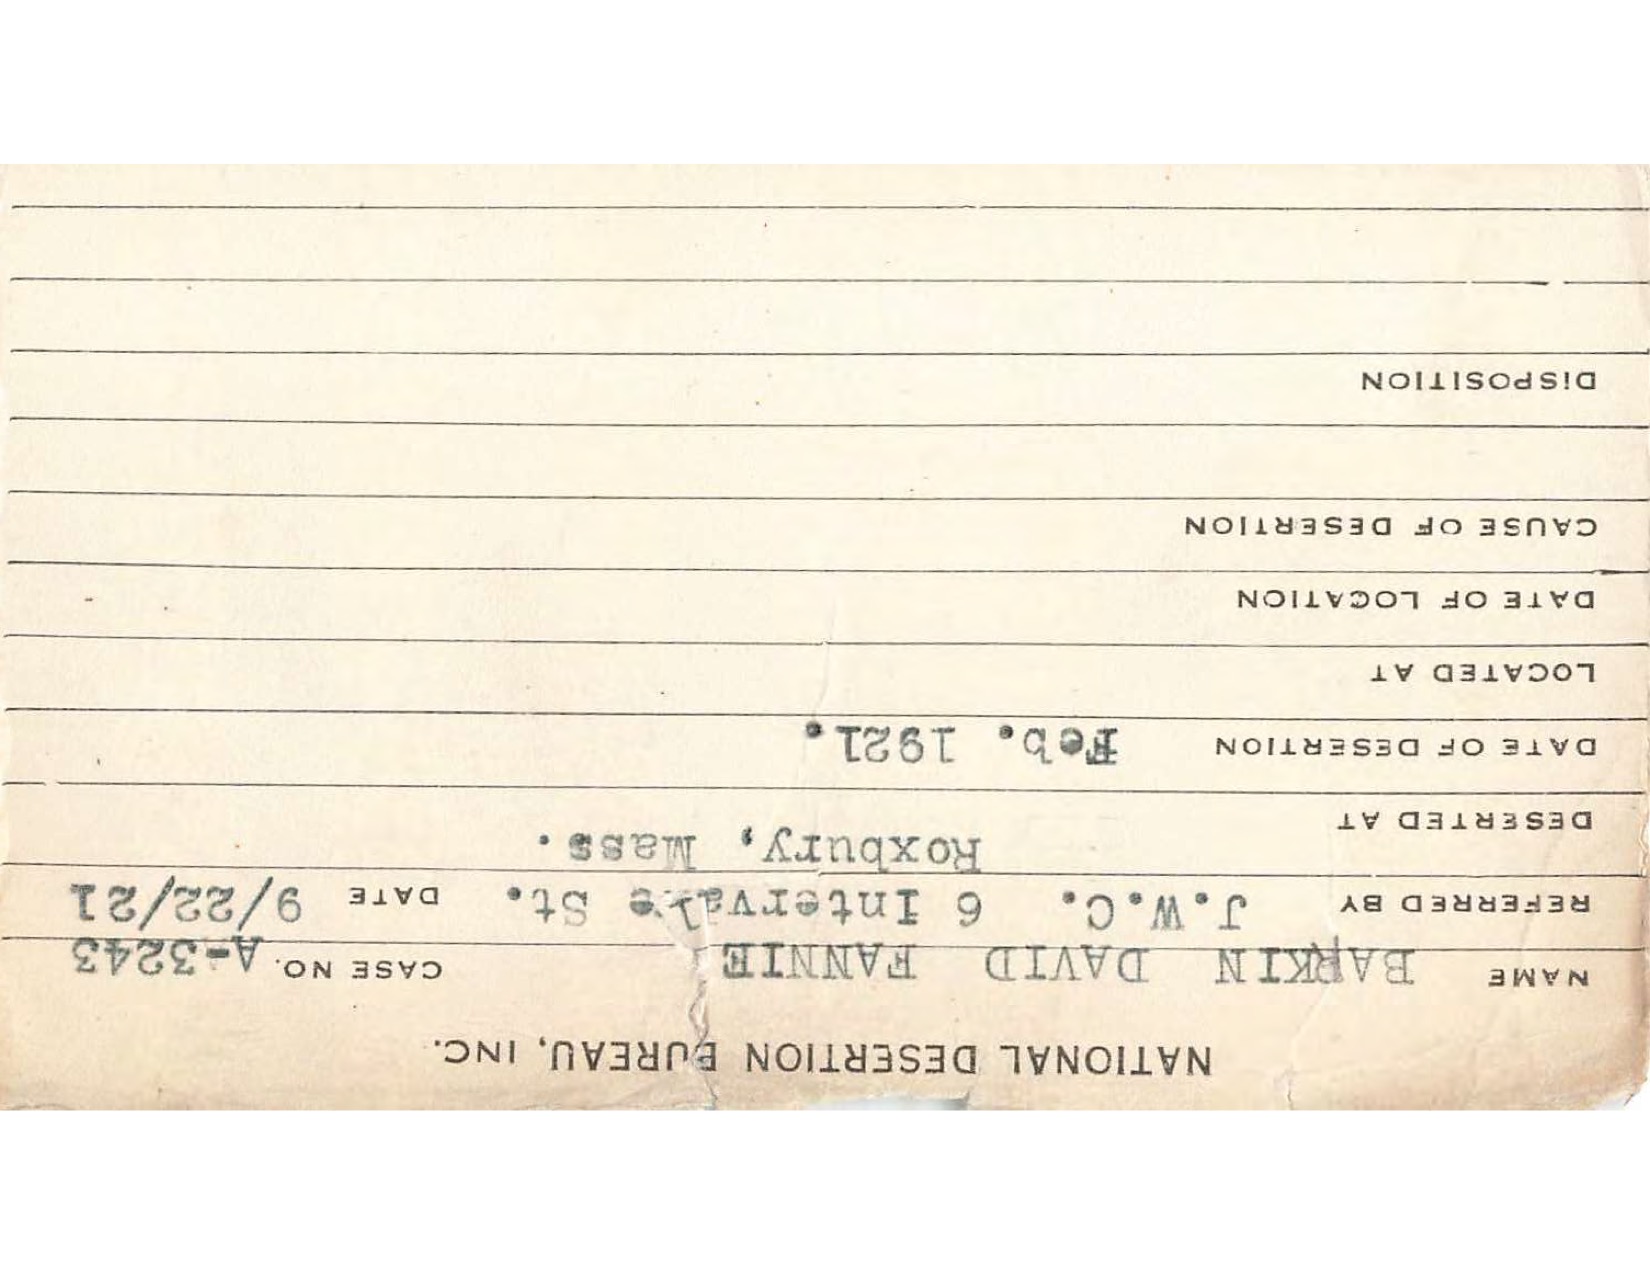 NATIONAL DESERTION BUREAU, INC.
NAME BARKIN DAVID FANNIE CASE NO. A-3243
REFERRED BY J.W.C. 6 Intervale St. DATE 9/22/21
Roxbury, Mass.
DESERTED AT
DATE OF DESERTION Feb. 1921.
LOCATED AT
DATE OF LOCATION
CAUSE OF DESERTION
DISPOSITION